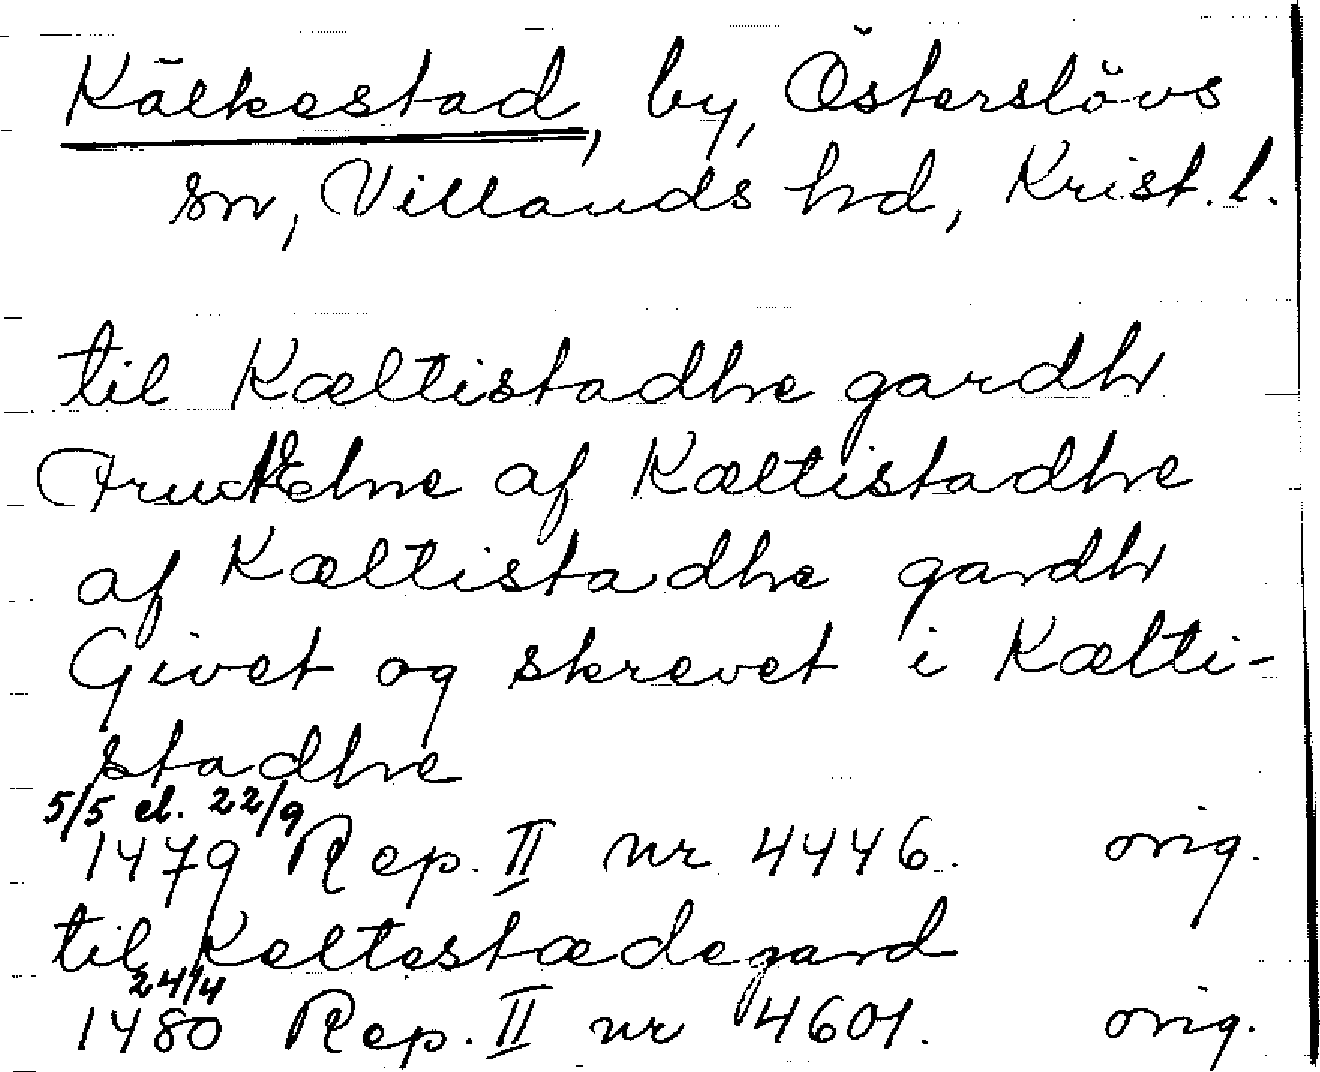 Kälkestad, by, Österslövs
sn, Villands hd, Krist. l.
til Kæltistadhe gardh
af Kæltistadhe
af Kæltistadhe gardh
Givet og skrevet i Kælti-
stadhe
5/5 el. 22/9
1479 Rep. II nr 4446. orig.
til Keltestædegard
24/4
1480 Rep. II nr 4601. orig.